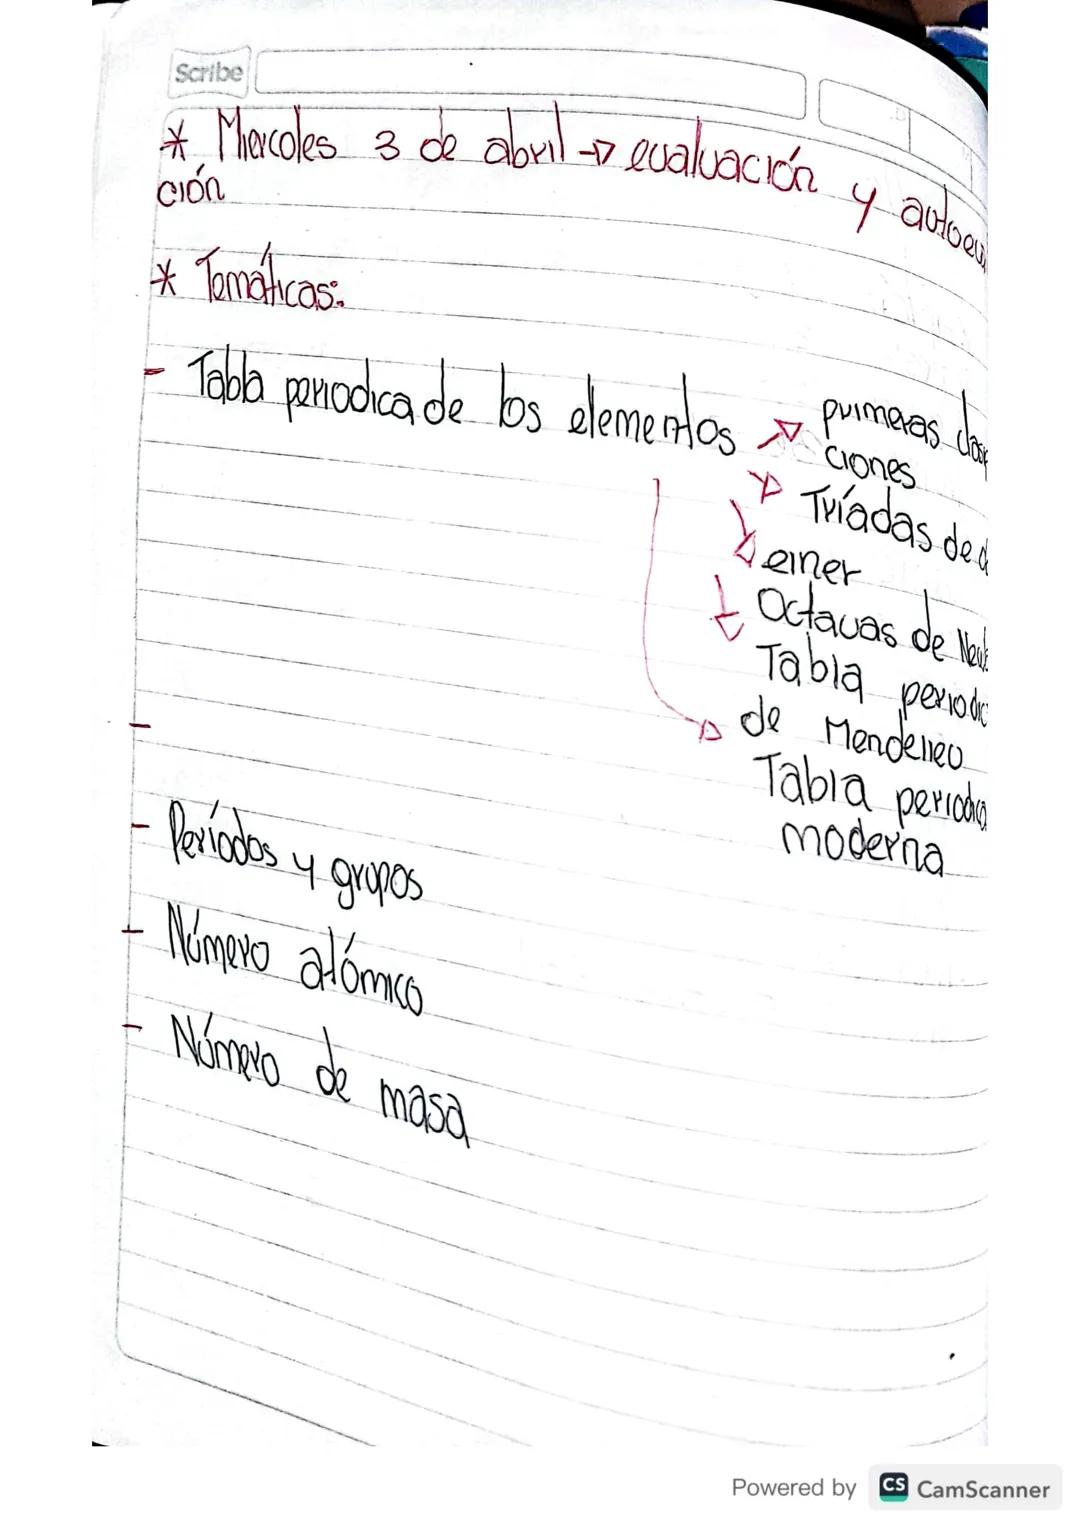 Scribe
* Miercoles 3 de abril → evaluación y autoeva
ción
* Temáticas:
- Tabla periodica de los elementos → primeras clasi
ciones
Tríadas de d
einer
Octavas de New
Tabla periodic
de Mendeliev
Tabla periodica
moderna
-
- Períodos y grupos
- Número atómico
- Número de masa
Powered by CS CamScanner